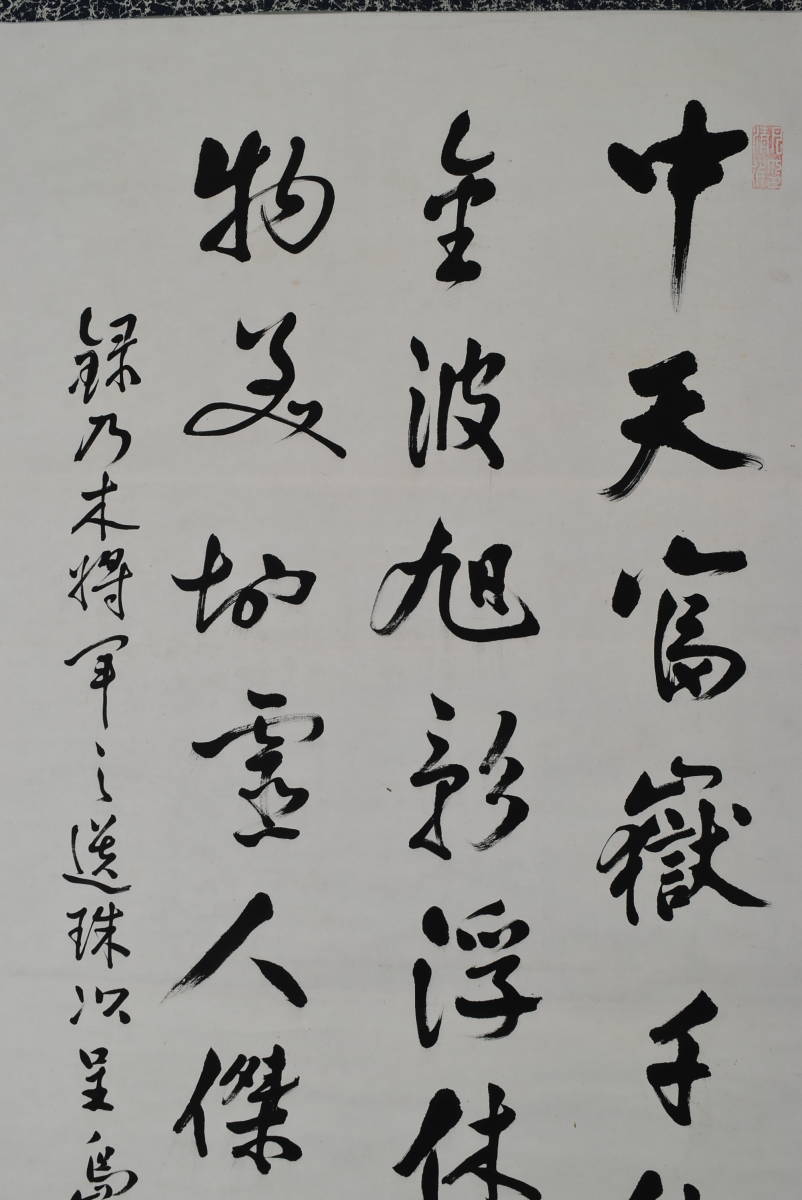 中天富嶽千
金波旭影浮休
物美地靈人傑
録乃木将軍之遺珠以呈